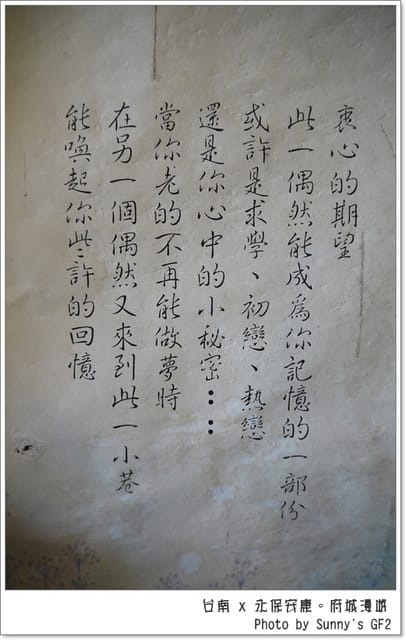 衷心的期望
此一偶然能成為你記憶的一部份
或許是求學、初戀、熱戀
還是你心中的小秘密‥‥
當你老的不再能做夢時
在另一個偶然又來到此一小巷
能喚起你些許的回憶
台南 x 永保安康。府城漫遊
Photo by Sunny's GF2